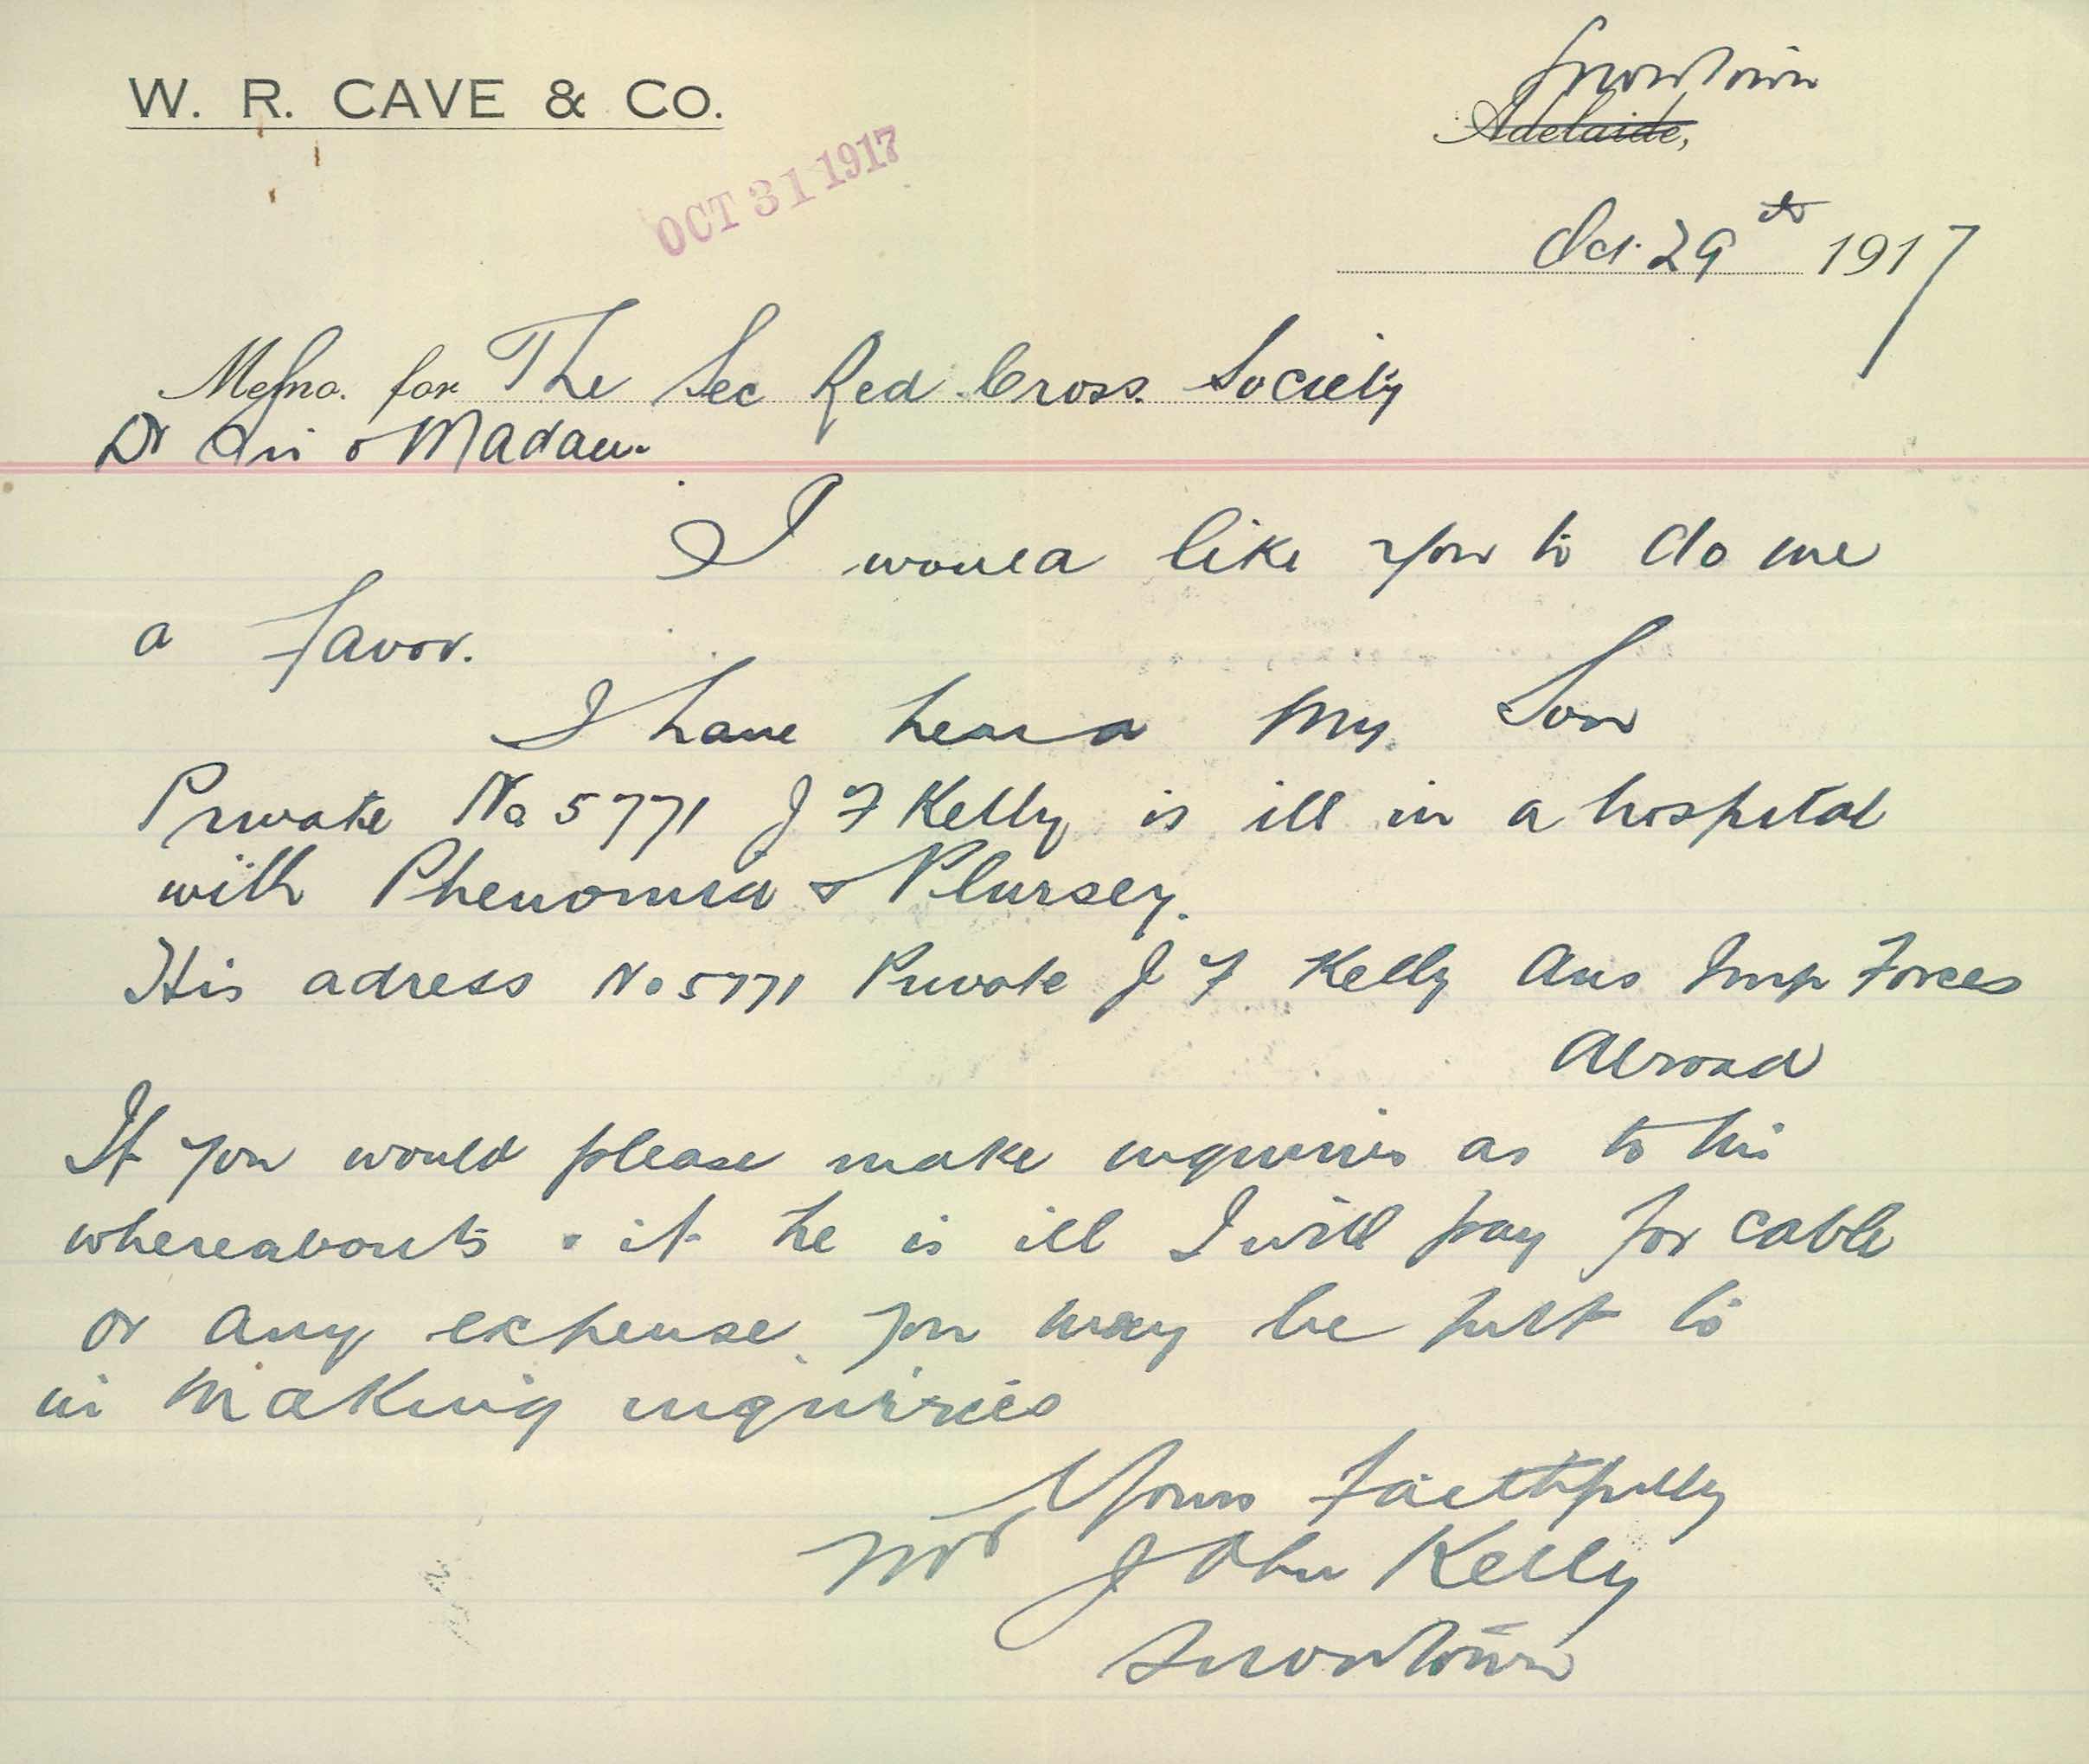 Snowtown
W. R. CAVE & Co.
Adelaide,
OCT 31 1917
Oct 29th 1917
Memo. for The Sec Red Cross Society
Dr Sir o Madam
I would like you to do me
a favor.
I have heard my Son
Private No 5771 J F Kelly is ill in a hospital
with Phenomia & Plursey.
His adress No 5771 Private J F Kelly Aus Imp Forces
Abroad
If you would please make inquiries as to his
whereabouts & if he is ill I will pay for cable
or any expense you may be putt to
in making inquiries
Yours Faithfully
Mr John Kelly
Snowtown